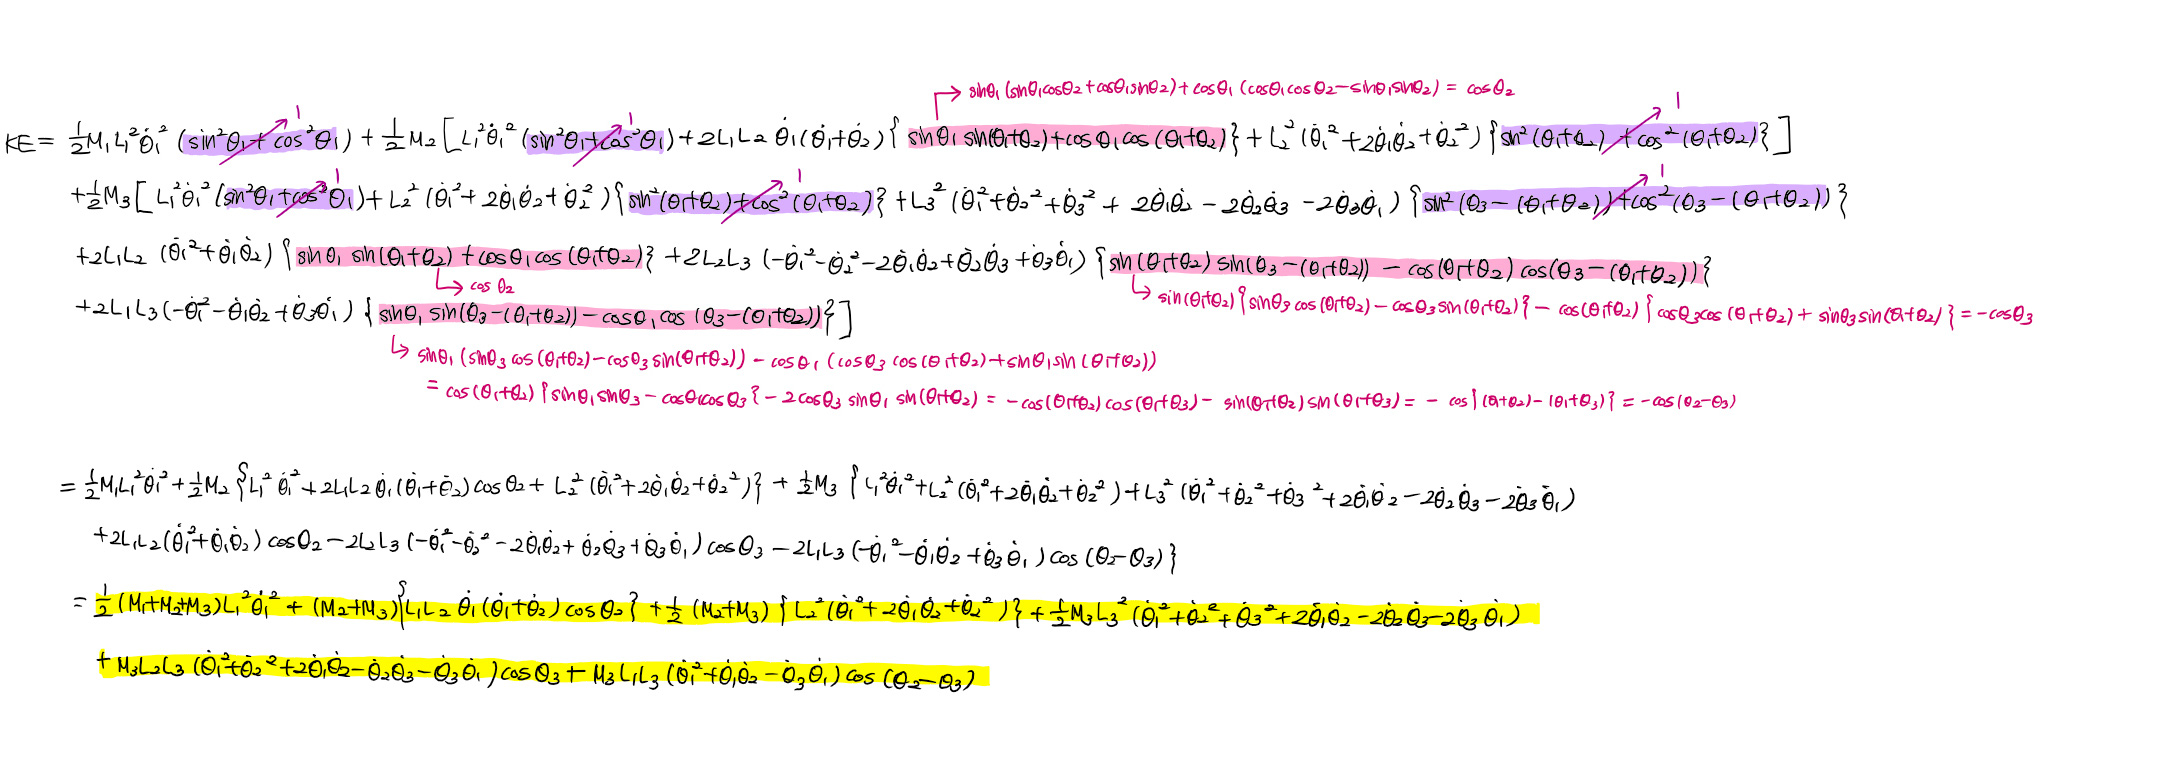 → sinθ₁(sinθ₁cosθ₂+cosθ₁sinθ₂)+cosθ₁(cosθ₁cosθ₂−sinθ₁sinθ₂) = cosθ₂
1 1 1
KE = ½M₁L₁²θ̇₁²(sin²θ₁+cos²θ₁) + ½M₂[L₁²θ̇₁²(sin²θ₁+cos²θ₁)+2L₁L₂θ̇₁(θ̇₁+θ̇₂){sinθ₁sin(θ₁+θ₂)+cosθ₁cos(θ₁+θ₂)}+L₂²(θ̇₁²+2θ̇₁θ̇₂+θ̇₂²){sin²(θ₁+θ₂)+cos²(θ₁+θ₂)}]
1 1 1
+½M₃[L₁²θ̇₁²(sin²θ₁+cos²θ₁)+L₂²(θ̇₁²+2θ̇₁θ̇₂+θ̇₂²){sin²(θ₁+θ₂)+cos²(θ₁+θ₂)}+L₃²(θ̇₁²+θ̇₂²+θ̇₃²+2θ̇₁θ̇₂−2θ̇₂θ̇₃−2θ̇₃θ̇₁){sin²(θ₃−(θ₁+θ₂))+cos²(θ₃−(θ₁+θ₂))}
+2L₁L₂(θ̇₁²+θ̇₁θ̇₂){sinθ₁sin(θ₁+θ₂)+cosθ₁cos(θ₁+θ₂)}+2L₂L₃(−θ̇₁²−θ̇₂²−2θ̇₁θ̇₂+θ̇₂θ̇₃+θ̇₃θ̇₁){sin(θ₁+θ₂)sin(θ₃−(θ₁+θ₂))−cos(θ₁+θ₂)cos(θ₃−(θ₁+θ₂))}
→ cosθ₂
→ sin(θ₁+θ₂){sinθ₃cos(θ₁+θ₂)−cosθ₃sin(θ₁+θ₂)}−cos(θ₁+θ₂){cosθ₃cos(θ₁+θ₂)+sinθ₃sin(θ₁+θ₂)}=−cosθ₃
+2L₁L₃(−θ̇₁²−θ̇₁θ̇₂+θ̇₃θ̇₁){sinθ₁sin(θ₃−(θ₁+θ₂))−cosθ₁cos(θ₃−(θ₁+θ₂))}]
→ sinθ₁(sinθ₃cos(θ₁+θ₂)−cosθ₃sin(θ₁+θ₂))−cosθ₁(cosθ₃cos(θ₁+θ₂)+sinθ₁sin(θ₁+θ₂))
= cos(θ₁+θ₂){sinθ₁sinθ₃−cosθ₁cosθ₃}−2cosθ₃sinθ₁sin(θ₁+θ₂) = −cos(θ₁+θ₂)cos(θ₁+θ₃)−sin(θ₁+θ₂)sin(θ₁+θ₃) = −cos{(θ₁+θ₂)−(θ₁+θ₃)} = −cos(θ₂−θ₃)
= ½M₁L₁²θ̇₁²+½M₂{L₁²θ̇₁²+2L₁L₂θ̇₁(θ̇₁+θ̇₂)cosθ₂+L₂²(θ̇₁²+2θ̇₁θ̇₂+θ̇₂²)}+½M₃{L₁²θ̇₁²+L₂²(θ̇₁²+2θ̇₁θ̇₂+θ̇₂²)+L₃²(θ̇₁²+θ̇₂²+θ̇₃²+2θ̇₁θ̇₂−2θ̇₂θ̇₃−2θ̇₃θ̇₁)
+2L₁L₂(θ̇₁²+θ̇₁θ̇₂)cosθ₂−2L₂L₃(−θ̇₁²−θ̇₂²−2θ̇₁θ̇₂+θ̇₂θ̇₃+θ̇₃θ̇₁)cosθ₃−2L₁L₃(−θ̇₁²−θ̇₁θ̇₂+θ̇₃θ̇₁)cos(θ₂−θ₃)}
= ½(M₁+M₂+M₃)L₁²θ̇₁²+(M₂+M₃){L₁L₂θ̇₁(θ̇₁+θ̇₂)cosθ₂}+½(M₂+M₃){L₂²(θ̇₁²+2θ̇₁θ̇₂+θ̇₂²)}+½M₃L₃²(θ̇₁²+θ̇₂²+θ̇₃²+2θ̇₁θ̇₂−2θ̇₂θ̇₃−2θ̇₃θ̇₁)
+M₃L₂L₃(θ̇₁²+θ̇₂²+2θ̇₁θ̇₂−θ̇₂θ̇₃−θ̇₃θ̇₁)cosθ₃+M₃L₁L₃(θ̇₁²+θ̇₁θ̇₂−θ̇₃θ̇₁)cos(θ₂−θ₃)